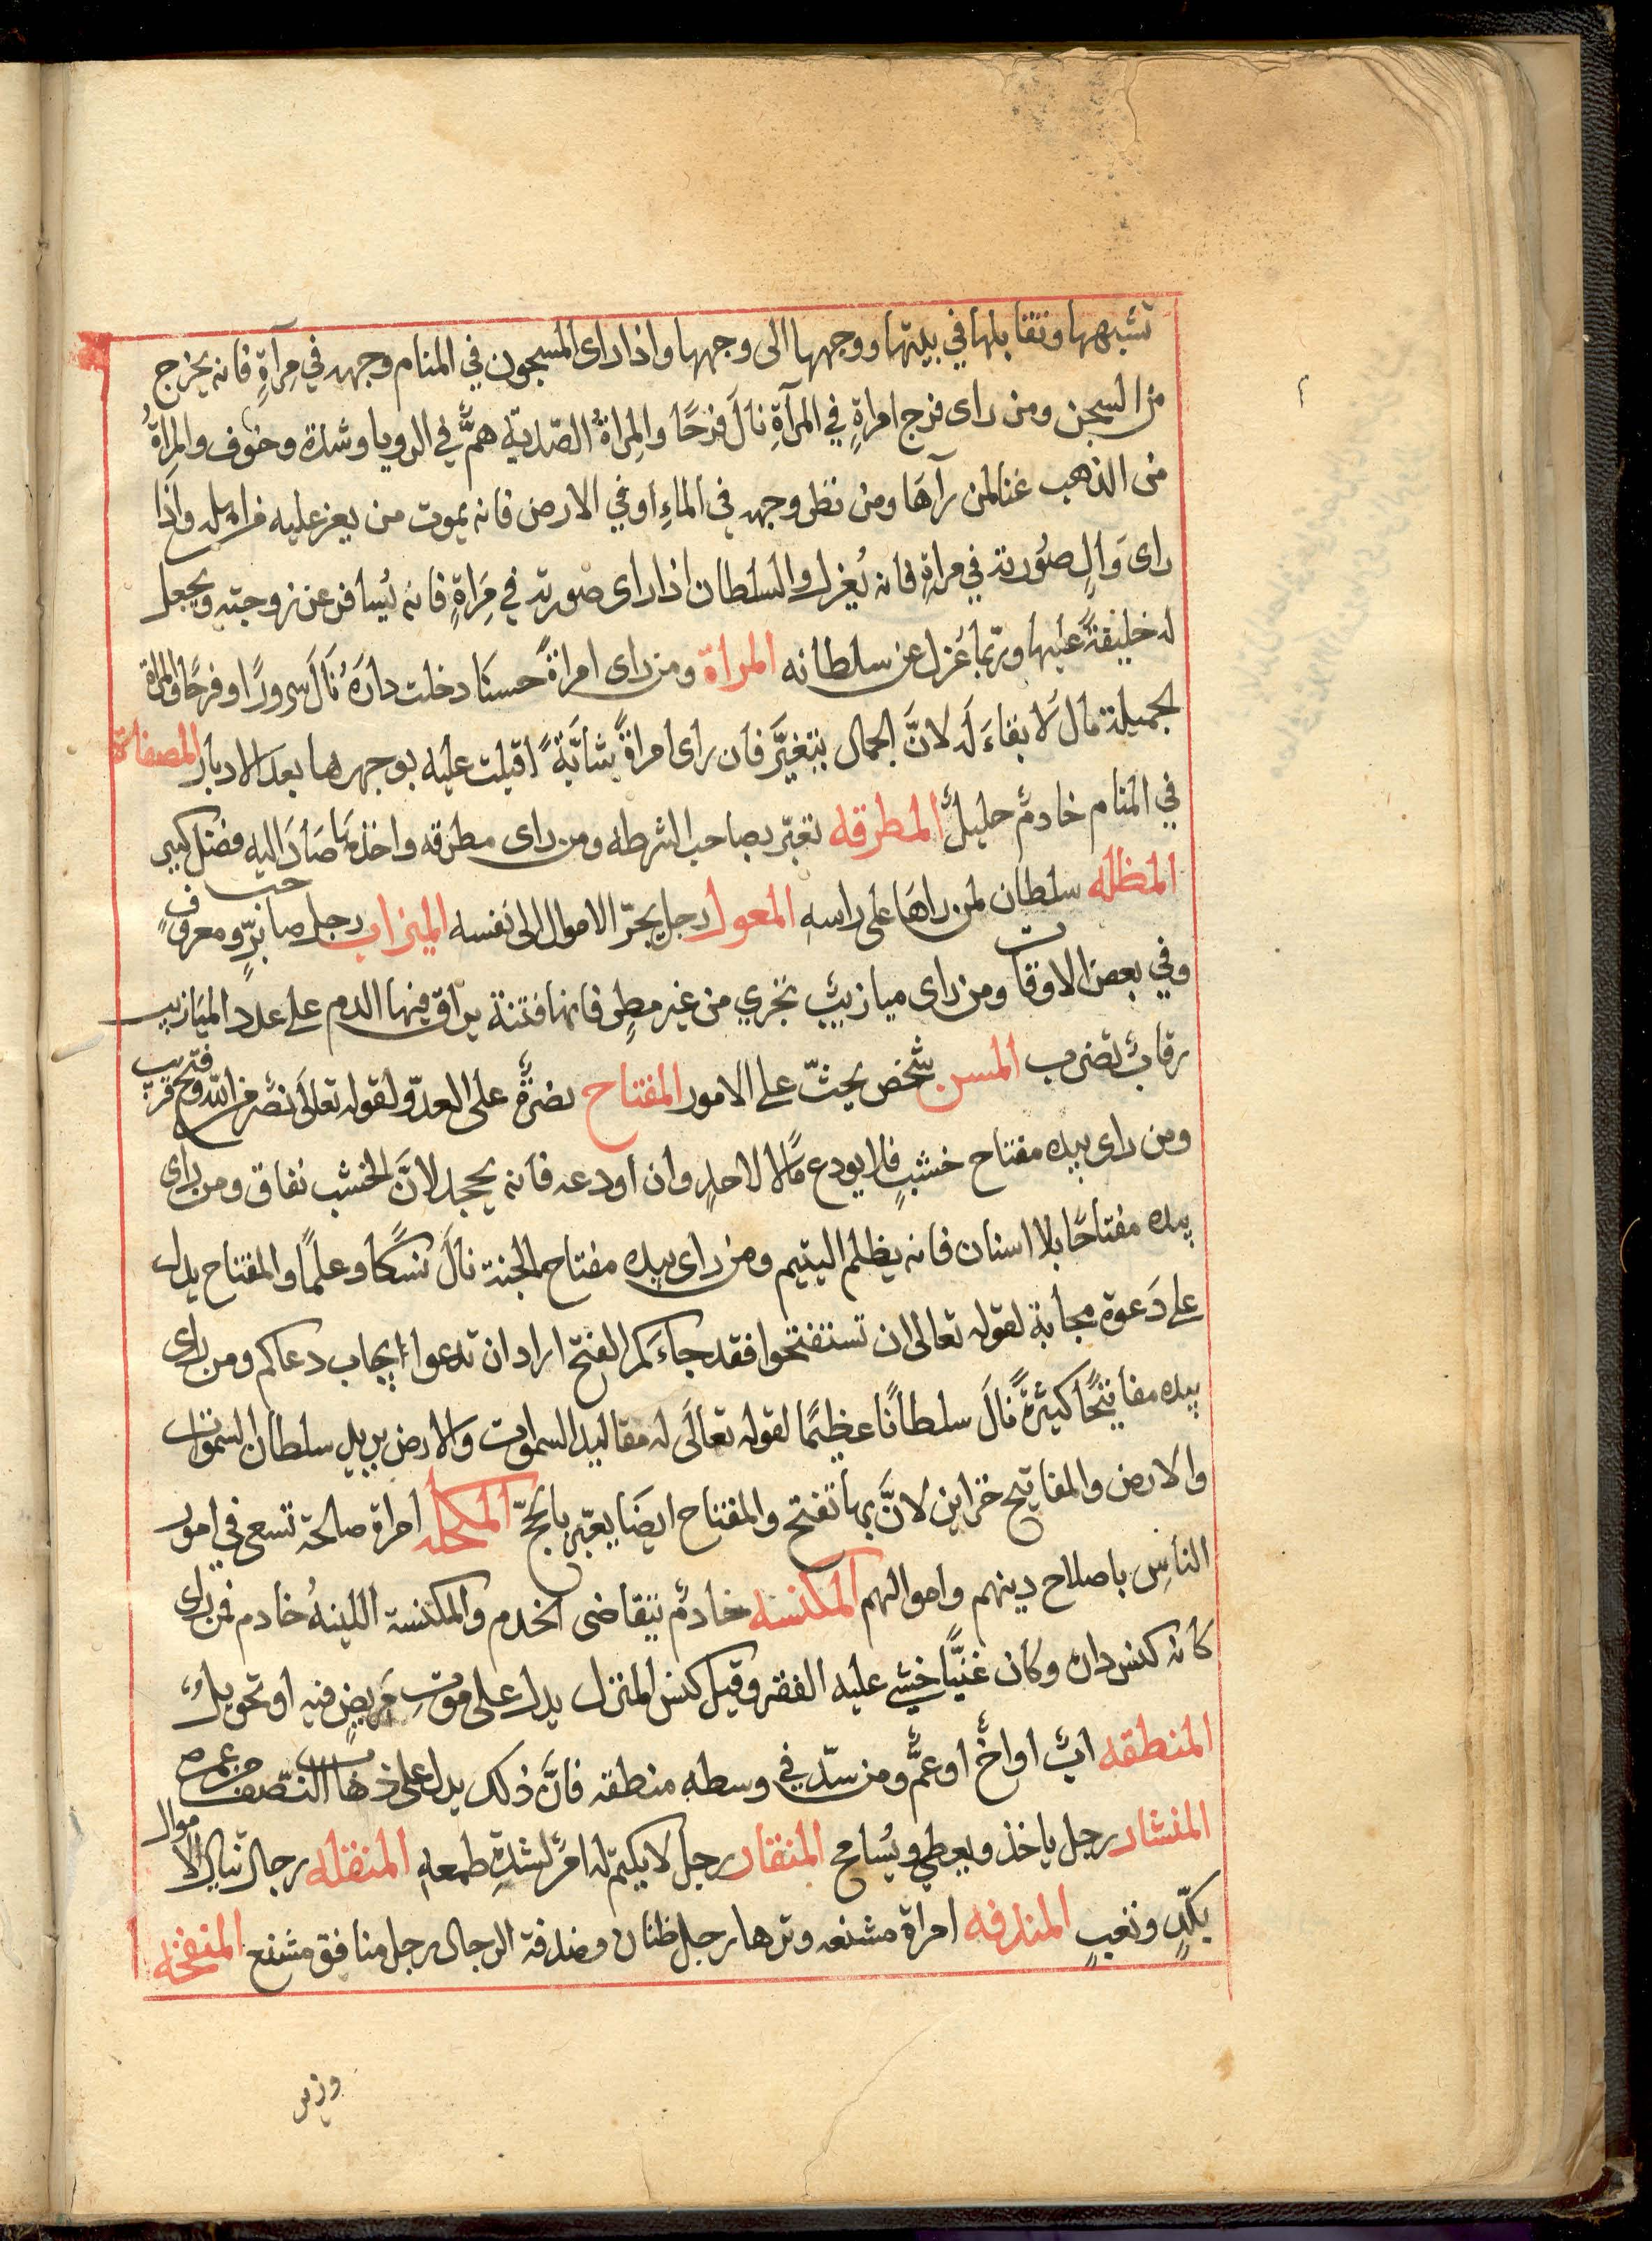 تشبهها وتقابلها في بيتها ووجهها الى وجهها واذا راى المسجون في المنام وجهه في مِرآةٍ فانه يخرج
من السجن ومن راى فرج امراةٍ في المرآةِ نالَ فرحًا والمِراةُ الصّديّة همٌّ في الرويا وشدة وخوف والمِراةُ
من الذهب غنا لمن رآهَا ومن نظر وجهه في الماءِ او في الارض فانه يموت من يعز عليه من اهله واذا
راى وَالٍ صُورته في مراةٍ فانه يُعزل والسلطان اذا راى صورته في مَراةٍ فانه يُسافر عن زوجته ويجعل
له خليفةً عليها وربّما عُزل عن سلطانه المراة ومن راى امراةً حسنَا دخلت دارَهُ نَالَ سرورًا وفرحًا والمراة
الجميلة مالٌ لا بقاءَ لَه لانَّ الجمال يتغيَّر فان راى امراةً شابّةً اقبلت عليه بوجهها بعد الادبار المصفاة
في المنام خادمٌ جليلٌ المطرقه تعبّر بصاحب الشرطه ومن راى مطرقه واخذهَا صَارَ اليه فضل كبير
المظله سلطان لمن راهَا على راسهِ المعول رجل يجرّ الاموال الى نفسه الميزاب رجل صاحب برٍّ ومعروفٍ
وفي بعض الاوقات ومن راى ميازيبٌ تجري من غير مطرٍ فانها فتنة يراق فيها الدم على عدد الميَازيب
رقابٌ تضرب المسن شخص يحثّ على الامور المفتاح نصرةٌ على العدوّ لقوله تعالَى نصر من الله وفتح قريب
ومن راى بيده مفتاح خشبٍ فلا يودع مالًا لاحدٍ وان اودعه فانه يجحد لانَّ الخشب نفاق ومن راى
بيده مفتاحًا بلا اسنان فانه يظلم اليتيم ومن راى بيده مفتاح الجنة نالَ نسكًا وعلمًا والمفتاح يدل
على دَعوة مجابة لقوله تعالى ان تستفتحوا فقد جاءَكم الفتح اراد ان تدعوا يجاب دعاكم ومن راى
بيده مفاتيحًا كثيرةً نَالَ سلطانًا عظيمًا لقوله تعالَى له مقاليد السموات والارض يريد سلطان السموات
والارض والمفاتيح خزاين لانَّ بها تفتح والمفتاح ايضَا يعبّر بالحجّ المكحله امراة صالحة تسعى في امور
الناسِ باصلاح دينهم واموالهم المكنسه خادمٌ يتقاضى الخدم والمكنسة اللينهُ خادم فمن راى
كانه كنس داره وكان غنيًّا خشي عليه الفقر وقيل كنس المنزل يدل على موتِ مَريضٍ فيه او تحويلٌ
المنطقه ابٌ او اخٌ او عمٌّ ومن شدّ في وسطه منطقه فانَّ ذلك يدل على ذهاب النّصف من عمره
المنشار رجل ياخذ ويعطي ويُسامح المنقار رجل لا يكتم له امرٌ لشدةِ طمعهِ المنقله رجال تنال الاموال
بكدٍّ وتعبٍ المندفه امراة مشنعه وترها رجل طنان ومندفة الرجال رجل منافق مشنع المنفخه
وزير